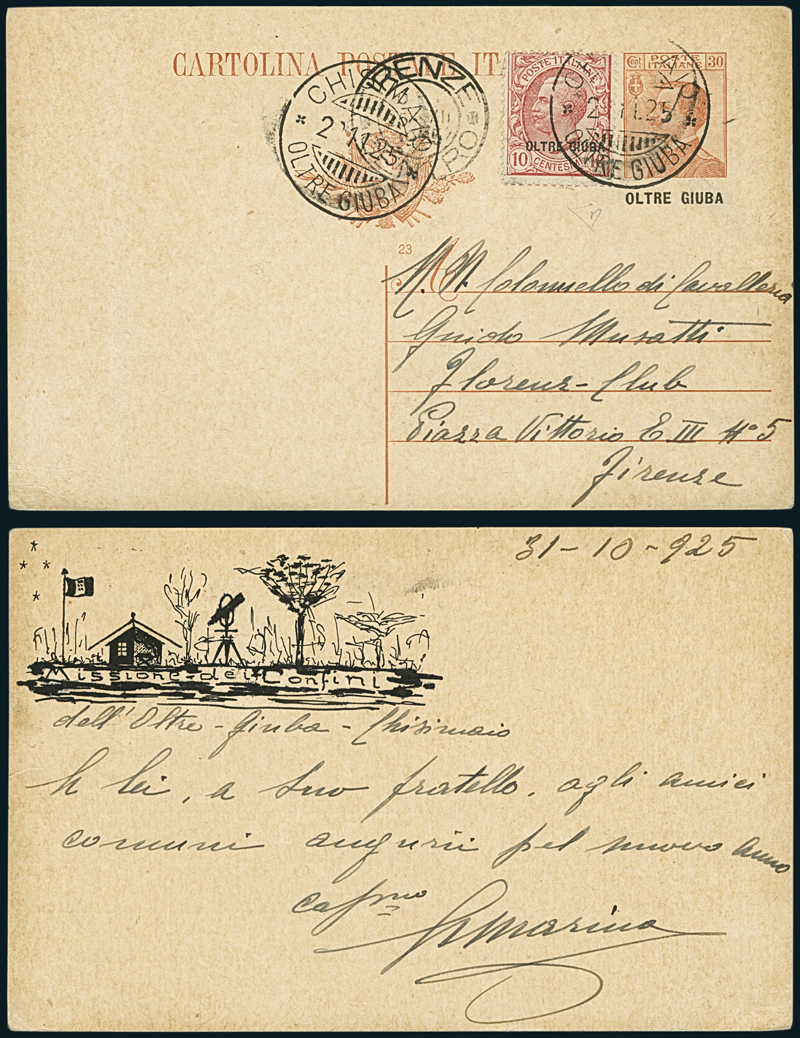 CARTOLINA POSTALE ITA
CHISIMAIO
2.11.25
OLTRE GIUBA
FIRENZE
POSTE ITALIANE
OLTRE GIUBA
10 CENTESIMI
2.11.25
OLTRE GIUBA
Cent POSTE ITALIANE 30
OLTRE GIUBA
23
N. N. Colonnello di Cavalleria
Guido Musatti
Florenz-Club
Piazza Vittorio E. III N° 5
Firenze
31-10-925
Missione dei Confini
dell'Oltre-Giuba-Chisimaio
A lei, a suo fratello, agli amici
comuni augurii pel nuovo anno